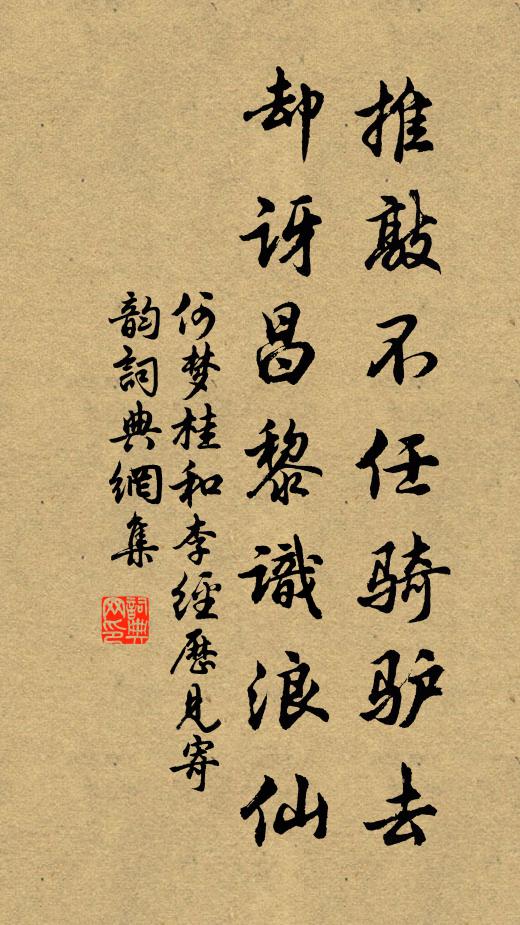 推敲不任骑驴去
却讶昌黎識浪仙
何梦桂和李經歷見寄
韵詞典網集
詞典
网印